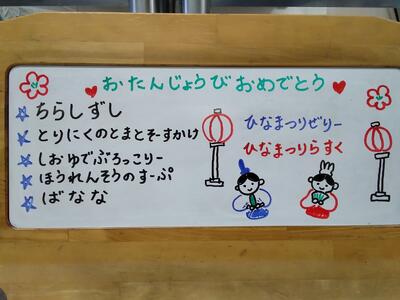 おたんじょうびおめでとう
ちらしずし
とりにくのとまとそーすかけ
しおゆでぶろっこりー
ほうれんそうのすーぷ
ばなな
ひなまつりぜりー
ひなまつりらすく